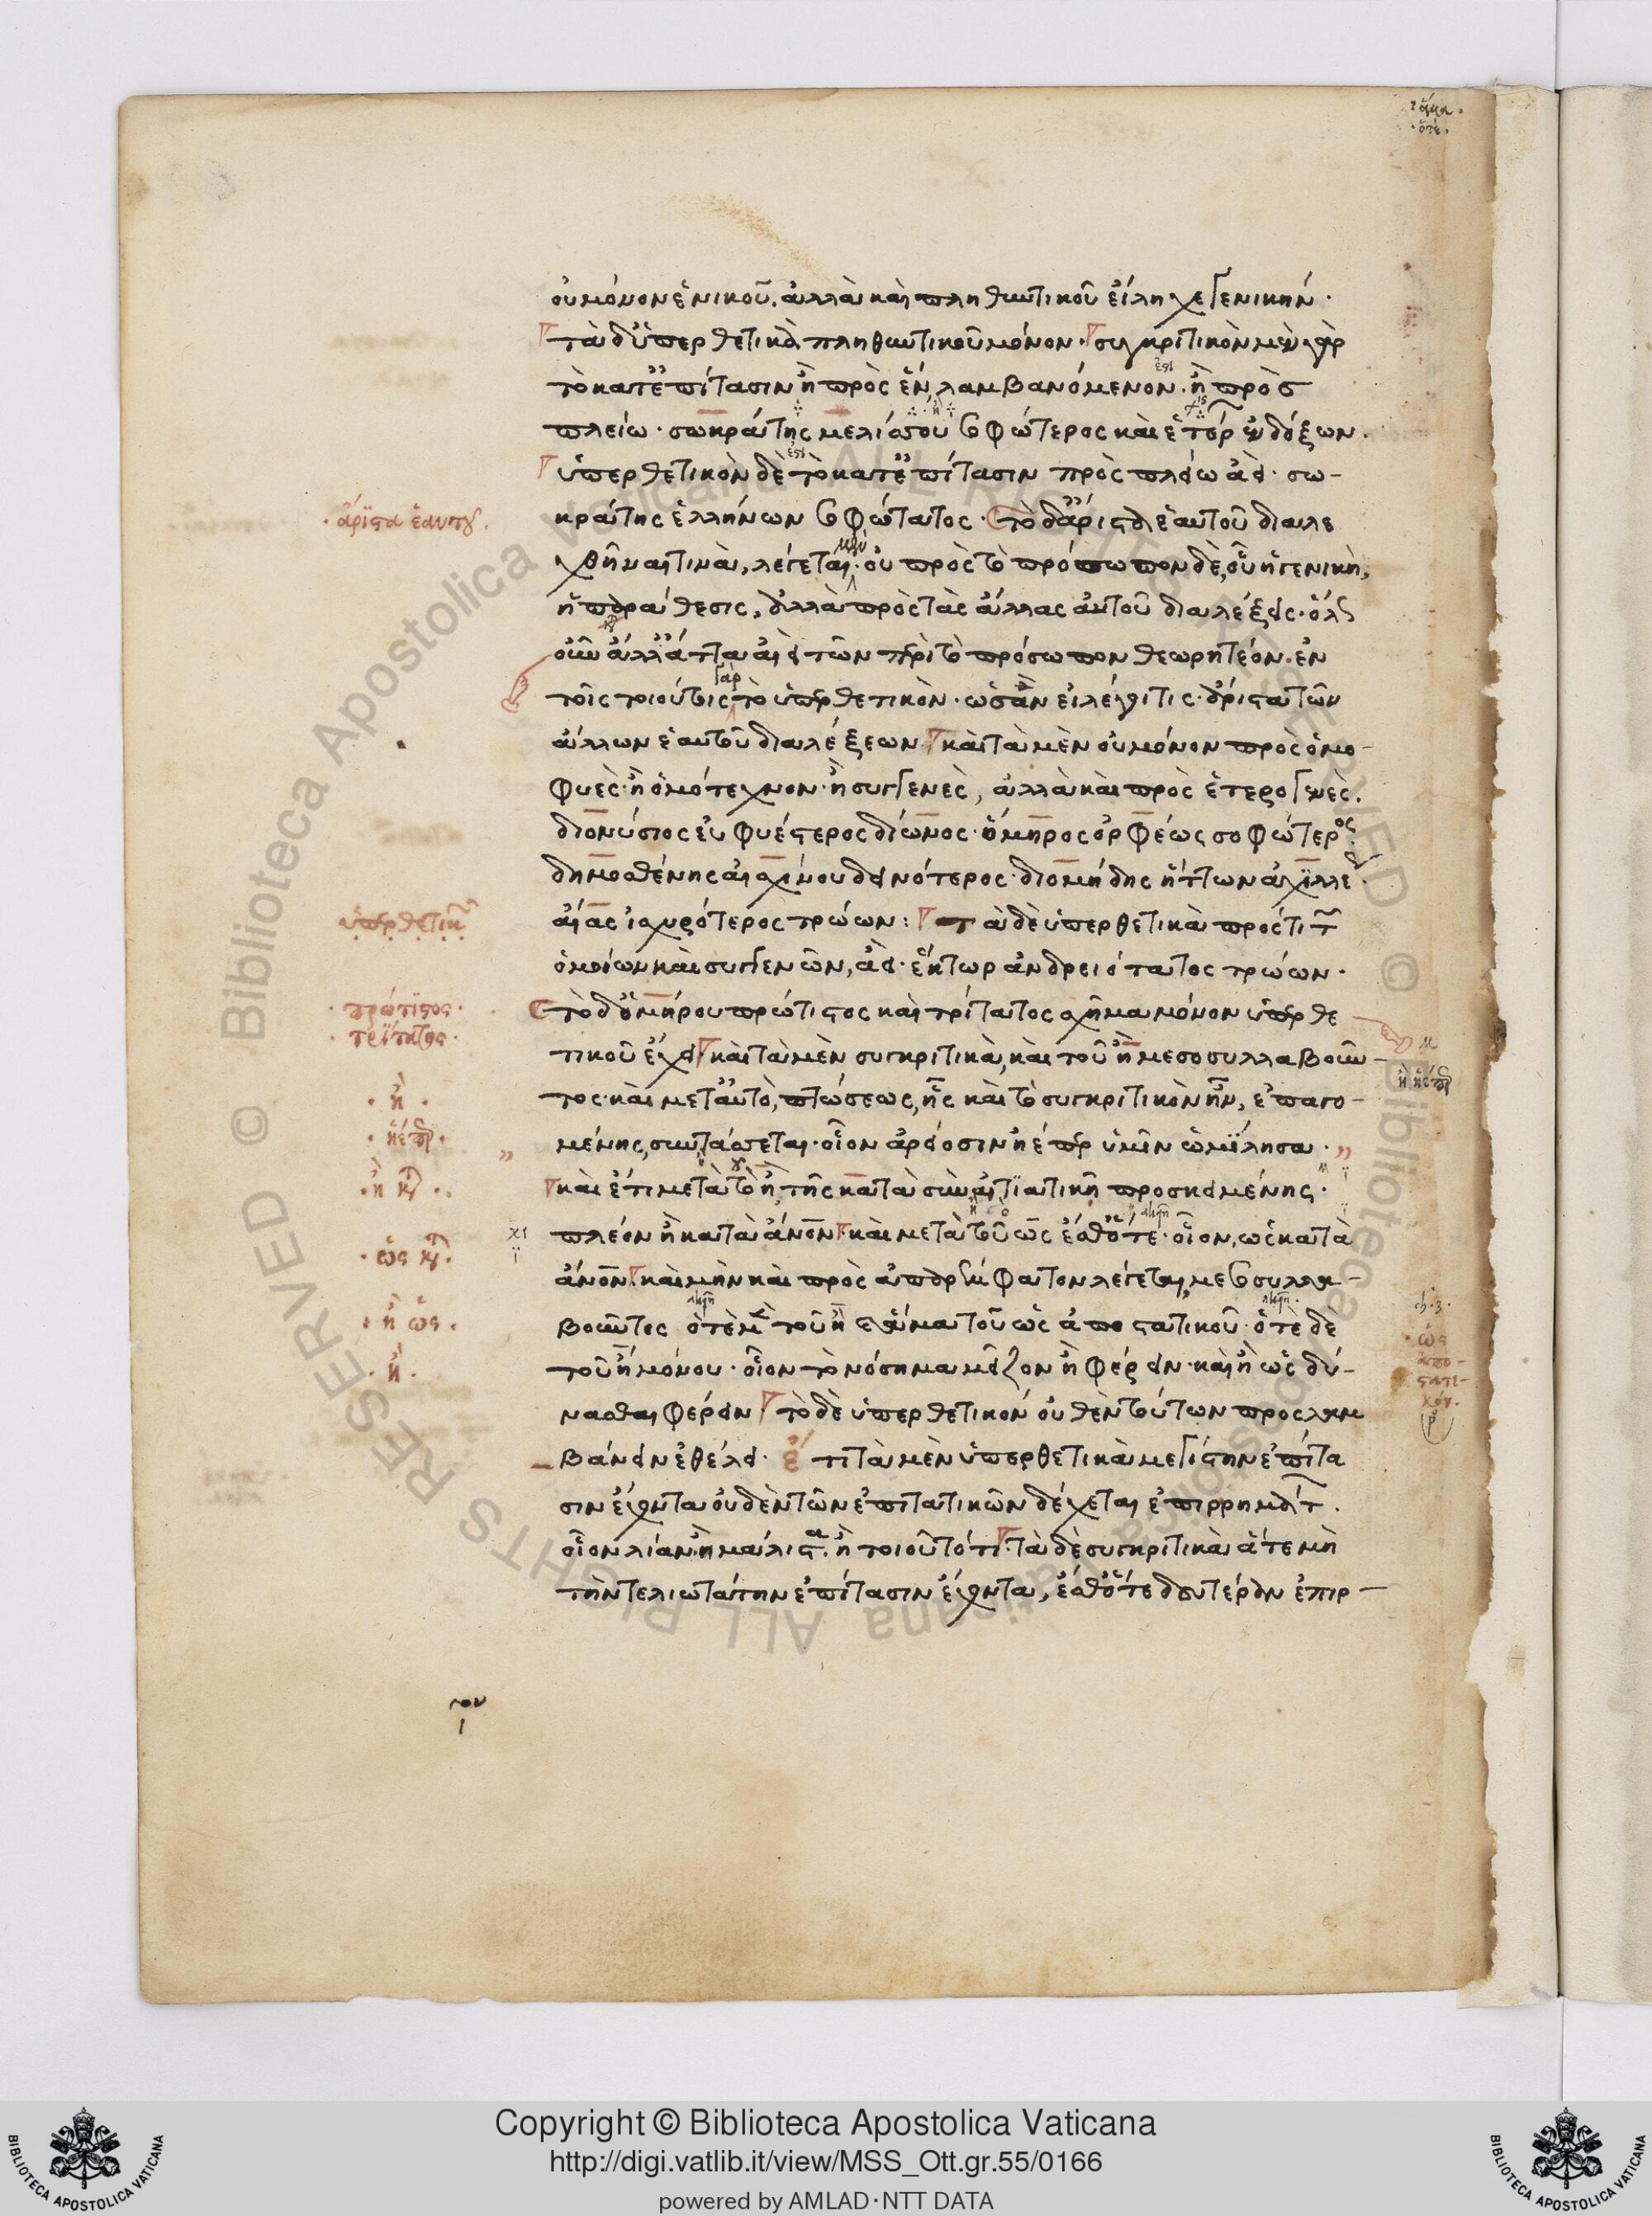 οὐ μόνον ἑνικοῦ, ἀλλὰ καὶ πληθυντικοῦ εἴληχε γενικήν·
τὰ δ' ὑπερθετικὰ πληθυντικοῦ μόνον· συγκριτικὸν μὲν γὰρ
τὸ κατ' ἐπίτασιν ἢ πρὸς ἓν, λαμβανόμενον· ἢ πρὸς
πλείω· σωκράτης μελίσσου σοφώτερος καὶ ἑτέρ ἐνδόξων·
ὑπερθετικὸν δὲ τὸ κατ' ἐπίτασιν πρὸς πλείω ἀεί· σω-
κράτης ἑλλήνων σοφώτατος· τὸ δ' ἄριστα ἑαυτοῦ διαλε
χθῆναι τινὰ, λέγεται μὲν· οὐ πρὸς τὸ πρόσωπον δὲ, οὗ ἡ γενικὴ,
ἡ παράθεσις, ἀλλὰ πρὸς τὰς ἄλλας αὐτοῦ διαλέξεις·
τῶν περὶ τὸ πρόσωπον θεωρητέον· ἐν
τοῖς τοιούτοις γὰρ τὸ ὑπερθετικὸν· ὡσὰν εἰ λέγει τις· ἄριστα τῶν
ἄλλων ἑαυτοῦ διαλέξεων· καὶ τὰ μὲν οὐ μόνον πρὸς ὁμο-
φυὲς· ἢ ὁμότεχνον· ἢ συγγενὲς, ἀλλὰ καὶ πρὸς ἑτερογενὲς·
διονύσιος εὐφυέστερος δίωνος· ὅμηρος ὀρφέως σοφώτερος·
δημοσθένης αἰσχίνου δεινότερος· διομήδης ἥττων ἀχιλλέ
αἴας ἰσχυρότερος τρώων: τὰ δὲ ὑπερθετικὰ πρός τι τ
ὁμοίων καὶ συγγενῶν, ἀεί· ἕκτωρ ἀνδρειότατος τρώων·
τὸ δ' ὁμήρου πρώτιστος καὶ τρίτατος σχῆμα μόνον ὑπερθε
τικοῦ ἔχει· καὶ τὰ μὲν συγκριτικὰ, καὶ τοῦ ἢ μεσοσυλλαβοῦν-
τος· καὶ μετ' αὐτὸ, πτώσεως, ἧς καὶ τὸ συγκριτικὸν ἦν, ἐπαγο-
μένης, συντάσσεται· οἷον ἄρείοσιν ἠέπερ ὑμῖν ὡμίλησα·
καὶ ἔτι μετὰ τὸ ἢ, τῆς κατὰ σὺν αἰτιατικῇ προσκειμένης·
πλέον ἢ κατὰ ἄνον· καὶ μετὰ τοῦ ὡς ἔσθ' ὅτε· οἷον, ὡς κατὰ
ἄνον· καὶ μὴν καὶ πρὸς ἀπαρέμφατον λέγεται, μεσοσυλλα-
βοῦντος ὁτὲ μὲν τοῦ ἢ καὶ ἅμα τοῦ ὡς ἀποστατικοῦ· ὁτὲ δὲ
τοῦ ἢ μόνου· οἷον τὸ νόσημα μεῖζον ἢ φέρειν· καὶ ἢ ὡς δύ-
νασθαι φέρειν· τὸ δὲ ὑπερθετικόν οὐθὲν τούτων προσλαμ
βάνειν ἐθέλει· ἔτι τὰ μὲν ὑπερθετικὰ μεγίστην ἐπίτα
σιν ἔχοντα οὐδὲν τῶν ἐπιτατικῶν δέχεται ἐπιρρημάτ·
οἷον λίαν· ἢ μάλιστα· ἢ τοιοῦτό τι· τὰ δὲ συγκριτικὰ ἅτε μὴ
τὴν τελεωτάτην ἐπίτασιν ἔχοντα, ἔσθ' ὅτε δευτέραν ἐπιρ-
· ἄριστα ἑαυτοῦ.
ὑπερθετικ
· πρώτιστος·
· τρίτατος·
· ἢ ·
· ἠέπερ·
· ἢ κατὰ ·
· ὡς κατὰ·
· ἢ ὡς ·
· ἢ ·
· ὡς
ἀπο-
στατι-
κόν.
Copyright © Biblioteca Apostolica Vaticana
http://digi.vatlib.it/view/MSS_Ott.gr.55/0166
powered by AMLAD·NTT DATA
BIBLIOTECA APOSTOLICA VATICANA
BIBLIOTECA APOSTOLICA VATICANA
© Biblioteca Apostolica Vaticana ALL RIGHTS RESERVED © Biblioteca Apostolica Vaticana ALL RIGHTS RESERVED